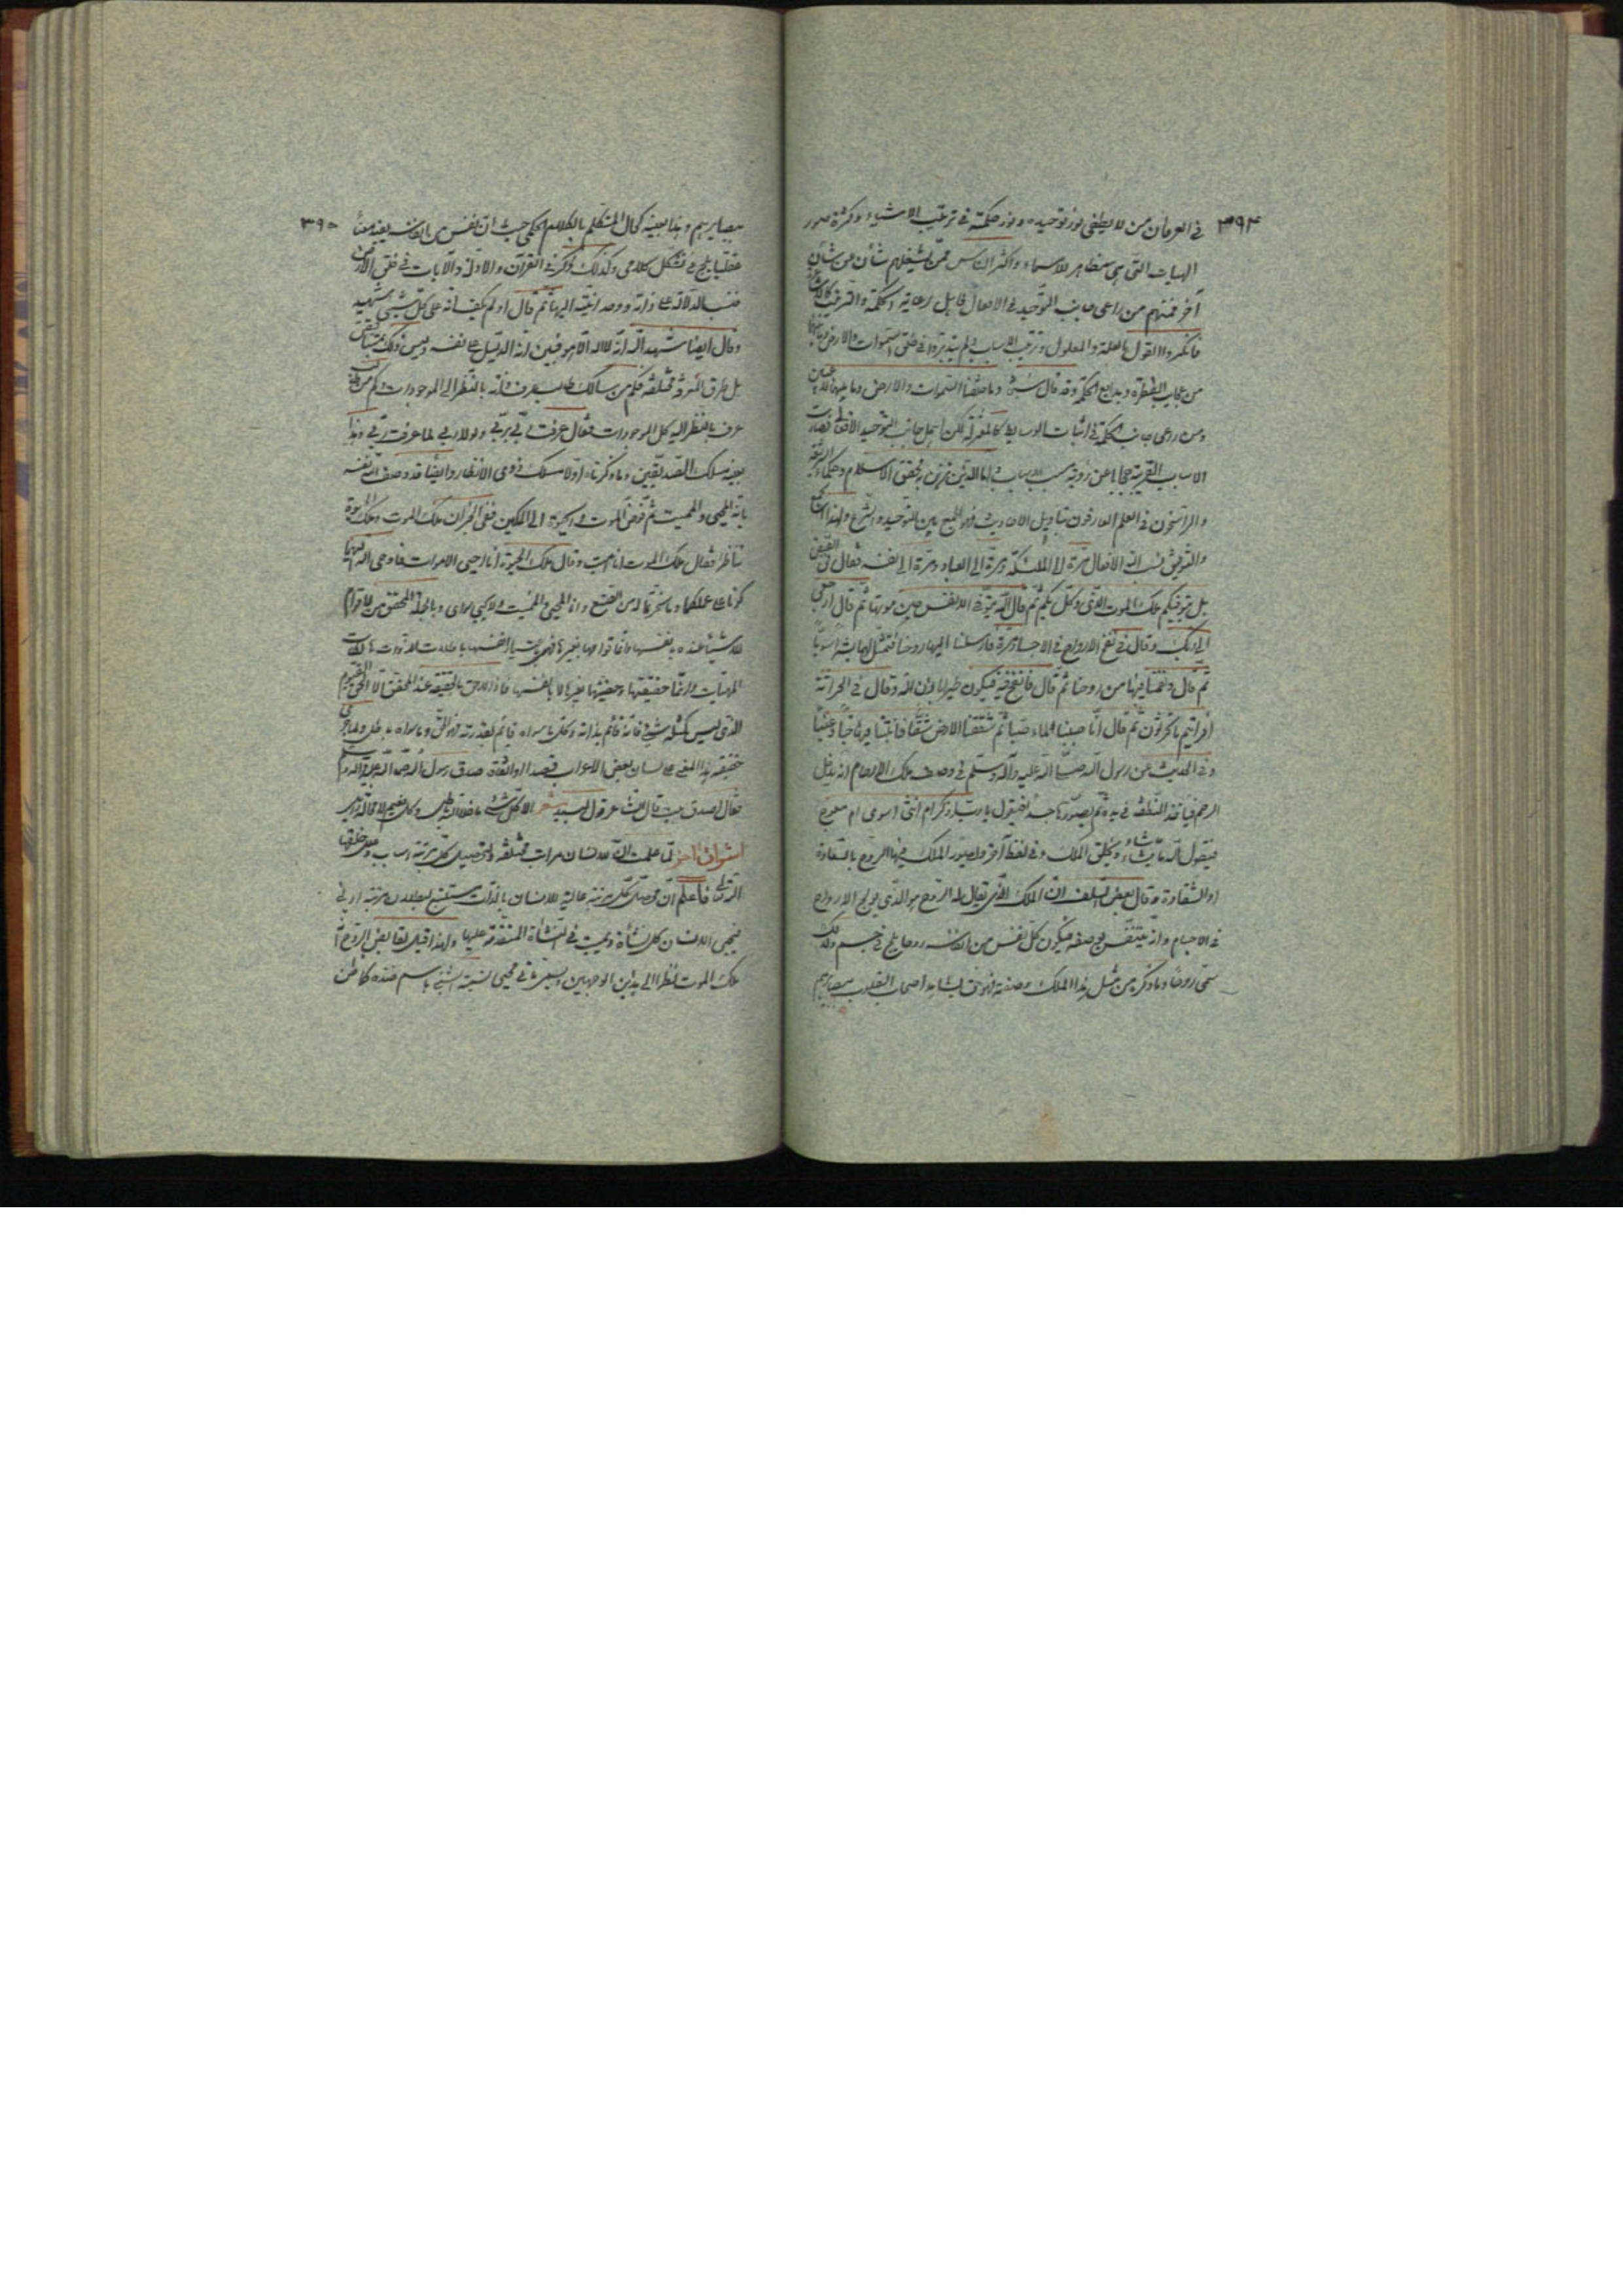 ٣٩٤
في العرفان من لا يطفي نور توحيده و نور حكمته في ترتيب الاشياء و كثرة صور
الهيات التي هي مظاهر للاسماء و اكثر الناس ممن يشغلهم شأن عن شأن
آخر فمنهم من راعى جانب التوحيد في الافعال فابطل رعاية الحكمة و الترتيب كالاشاعرة
فانكروا القول بالعلة و المعلول و ترتيب الاسباب و لم يتدبروا في خلق السموات و الارض و ما بينهما
من عجايب الفطرة و بدايع الحكمة و قد قال سبحانه و ما خلقنا السموات و الارض و ما بينهما لاعبين
و من راعى جانب الحكمة في اثبات الوسايط كالمعتزلة لكن اهمل جانب التوحيد الافعالي فصارت
الاسباب القريبة حجابا عن رؤية مسبب الاسباب و اما الذين بتحقق الاسلام و حكماء الشريعة
و الراسخون في العلم العارفون بتأويل الاحاديث فهو الجمع بين التوحيد و الشرع و لهذا
و التوفيق نسب الله الافعال مرة الى الملئكة و مرة الى العباد و مرة الى نفسه فقال في
قل يتوفيكم ملك الموت الذي وكل بكم ثم قال الله يتوفى الانفس حين موتها ثم قال ارجعي
الى ربك و قال في نفخ الارواح في الاجساد مرة فارسلنا اليها روحنا فتمثل لها بشرا سويا
ثم قال و نفخنا فيها من روحنا ثم قال فانفخ فيه فيكون طيرا باذن الله و قال في الحراثة
افرأيتم ما تحرثون ثم قال انا صببنا الماء صبا ثم شققنا الارض شقا فانبتنا فيها حبا و عنبا
و في الحديث عن رسول الله صلى الله عليه و آله و سلم في وصف ملك الارحام انه يدخل
الرحم فيأخذ النطفة في يده ثم يصورها جسدا فيقول يا رب اذكر ام انثى اسوي ام معوج
فيقول الله ما يشاء و يخلق الملك و في لفظ آخر و يصور الملك فيها الروح بالسعادة
او الشقاوة و قال بعض السلف ان الملك الذي يقال له الروح هو الذي يولج الارواح
في الاجسام و انه يتنفس بوصفه فيكون كل نفس من انفاسه روحا يلج في جسم و لذلك
سمى روحا و ما ذكره من مثل هذا الملك و صفته فهو حق يشاهده اصحاب القلوب ببصايرهم
٣٩٥
ببصايرهم و هذا بعينه كحال المتكلم بالكلام الحكمي حيث ان كل نفس من انفاسه يفيد معنى
عقليا يلج في تشكل كلامي و كذلك ذكر في القرآن و الادلة و الآيات في خلق الارض
فنسب الدلالة على ذاته و وحدانيته اليها ثم قال او لم يكف بربك انه على كل شيء شهيد
و قال ايضا شهد الله انه لا اله الا هو فبين انه الدليل على نفسه و ليس ذلك بمتناقض
بل طرق المعرفة مختلفة فكم من سالك طالب عرف الله بالنظر الى الموجودات و كم من
عرف بالنظر اليه كل الموجودات فقال عرفت ربي بربي و لولا ربي لما عرفت ربي و هذا
بعينه مسلك الصديقين و ما ذكرناه اولا مسلك ذوي الانظار و ايضا قد وصف الله نفسه
بانه المحيي و المميت ثم فوض الموت و الحيوة الى الملكين ففي الخبر ان ملك الموت و ملك الحيوة
تناظرا فقال ملك الموت انا اميت و قال ملك الحيوة انا احيي الاموات فاوحى الله اليهما
كونا على عملكما و ما سخرتما له من الصنع و انا المحيي و المميت لا يحيي سواي و بالجملة المحقق من لا قوام
للاشياء عنده بانفسها و انما قوامها بغيرها
الماهيات و انما حقيقتها و حقيتها بغيرها لا بانفسها فاذا لا حق بالحقيقة عند المحقق الا الحي القيوم
الذي ليس كمثله شيء فانه قائم بذاته و كل ما سواه قائم بقدرته فهو الحق و ما سواه باطل و لما جرى
حقيقة هذا المعنى على لسان بعض الاعراب قصدا او اتفاقا صدق رسول الله صلى الله عليه و آله و سلم
فقال اصدق بيت قال الشاعر قول لبيد شعر الا كل شيء ما خلا الله باطل و كل نعيم لا محالة زايل
اشراق آخر لما علمت ان للانسان مراتب مختلفة و لتحصيل كل مرتبة اسباب
الترقي فاعلم ان تحصيل كل مرتبة عالية للانسان بالذات يستتبع لبطلان مرتبة ادنى
فيحيي الانسان كل نشأة و يميت في النشأة المتقدمة عليها و لهذا قيل لقابض الروح
ملك الموت نظرا الى هذين الوجهين و يسمى ما في يحيي لنسبة الشيء باسم ضده